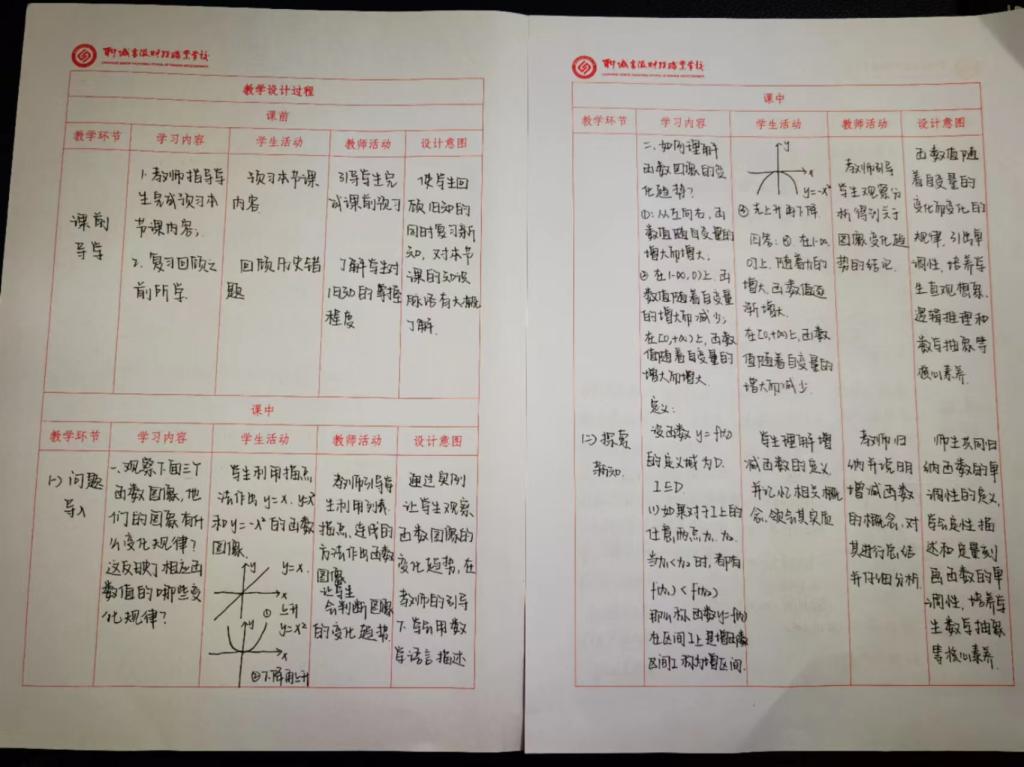 教学设计过程
课前
教学环节 学习内容 学生活动 教师活动 设计意图
课前
导学
1. 教师指导学
生完成预习本
节课内容;
2. 复习回顾之
前所学.
预习本节课
内容
回顾历史错
题
引导学生完
成课前预习
了解学生对
旧知的掌握
程度
使学生回
顾旧知的
同时复习新
知, 对本节
课的知识
脉络有大概
了解.
课中
教学环节 学习内容 学生活动 教师活动 设计意图
(一) 问题
导入
一、观察下面三个
函数图像, 他
们的图象有什
么变化规律?
这反映了相应函
数值的哪些变
化规律?
学生利用描点
法作出 y=x. y=x²
和 y=-x² 的函数
图像.
y=x.
x
① 上升
y=x²
x
②下降再上升
教师引导学
生利用列表
描点、连线的
方法作出函数
图像
让学生
会判断图像
的变化趋势.
通过实例
让学生观察
函数图像的
变化趋势, 在
教师的引导
下, 学会用数
学语言描述
课中
教学环节 学习内容 学生活动 教师活动 设计意图
二、如何理解
函数图像的变
化趋势?
①: 从左向右, 函
数值随自变量的
增大而增大.
② 在(-∞,0)上, 函
数值随着自变量
的增大而减少;
在[0,+∞)上, 函数
值随着自变量的
增大而增大.
y
x
y=-x²
③ 先上升再下降
回答: ③ 在(-∞,
0)上, 随着x的
增大, 函数值逐
渐增大.
在[0,+∞)上, 函数
值随着自变量的
增大而减少.
教师引导
学生观察分
析得到关于
图像变化趋
势的结论.
函数值随
着自变量的
变化而变化的
规律, 引出单
调性, 培养学
生直观想象、
逻辑推理和
数学抽象等
核心素养.
(二) 探索
新知.
定义:
设函数 y=f(x)
的定义域为D.
I⊆D
(1)如果对于I上的
任意两点x₁, x₂.
当x₁<x₂时, 都有
f(x₁)<f(x₂)
那么称函数y=f(x)
在区间I上是增函数
区间I称为增区间.
学生理解增
减函数的定义
并记忆相关概
念, 领会其实质
教师归
纳并说明
增减函数
的概念, 对
其进行总结
并仔细分析.
师生共同归
纳函数的单
调性的定义,
学会定性描
述和定量刻
画函数的单
调性, 培养学
生数学抽象
等核心素养.